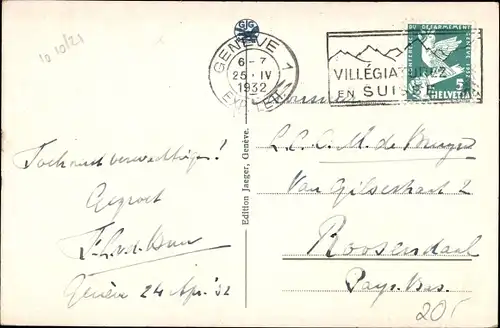 10 10/21
GENÈVE 1
6–7
25·IV
1932
EXP. LETT.
VILLÉGIATUREZ
EN SUISSE
CONFERENCE DU DESARMEMENT GENEVE 1932
5
HELVETIA
L.C.A.M. de Bruyn
Van Gilsestraat 2
Roosendaal
Pays-Bas.
20,-
Edition Jaeger, Genève.
Toch niet
Gegroet
Genève 24 Apr. '32